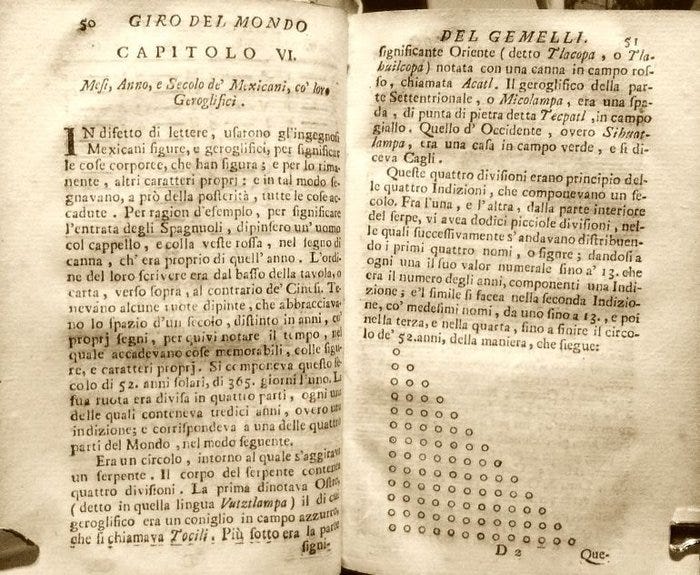 50 GIRO DEL MONDO
CAPITOLO VI.
Mesi, Anno, e Secolo de' Mexicani, co' loro
Geroglifici.
IN difetto di lettere, usarono gl'ingegnosi
Mexicani figure, e geroglifici, per significar
le cose corporee, che han figura; e per lo rima-
nente, altri caratteri proprj: e in tal modo se-
gnavano, a prò della posterità, tutte le cose ac-
cadute. Per ragion d'esemplo, per significare
l'entrata degli Spagnuoli, dipinsero un'uomo
col cappello, e colla veste rossa, nel segno di
canna, ch'era proprio di quell'anno. L'ordi-
ne del loro scrivere era dal basso della tavola, o
carta, verso sopra, al contrario de' Cinesi. Te-
nevano alcune ruote dipinte, che abbracciava-
no lo spazio d'un secolo, distinto in anni, co'
proprj segni, per quivi notare il tempo, nel
quale accadevano cose memorabili, colle figu-
re, e caratteri proprj. Si componeva questo se-
colo di 52. anni solari, di 365. giorni l'uno. La
sua ruota era divisa in quattro parti, ogni una
delle quali conteneva tredici anni, overo una
indizione; e corrispondeva a una delle quattro
parti del Mondo, nel modo seguente.
Era un circolo, intorno al quale s'aggirava
un serpente. Il corpo del serpente contenea
quattro divisioni. La prima dinotava Ostro,
(detto in quella lingua Vutztlampa) il di cui
geroglifico era un coniglio in campo azzurro,
che si chiamava Tocili. Più sotto era la parte
signi-
DEL GEMELLI. 51
significante Oriente (detto Tlacopa, o Tla-
huilcopa) notata con una canna in campo ros-
so, chiamata Acatl. Il geroglifico della par-
te Settentrionale, o Micolampa, era una spa-
da, di punta di pietra detta Tecpatl, in campo
giallo. Quello d'Occidente, overo Sihuat-
lampa, era una casa in campo verde, e si di-
ceva Cagli.
Queste quattro divisioni erano principio del-
le quattro Indizioni, che componevano un se-
colo. Fra l'una, e l'altra, dalla parte interiore
del serpe, vi avea dodici picciole divisioni, nel-
le quali successivamente s'andavano distribuen-
do i primi quattro nomi, o figure; dandosi a
ogni una il suo valor numerale sino a' 13. che
era il numero degli anni, componenti una Indi-
zione; e'l simile si facea nella seconda Indizio-
ne, co' medesimi nomi, da uno sino a 13. e poi
nella terza, e nella quarta, sino a finire il circo-
lo de' 52. anni, della maniera, che siegue:
D 2 Que-